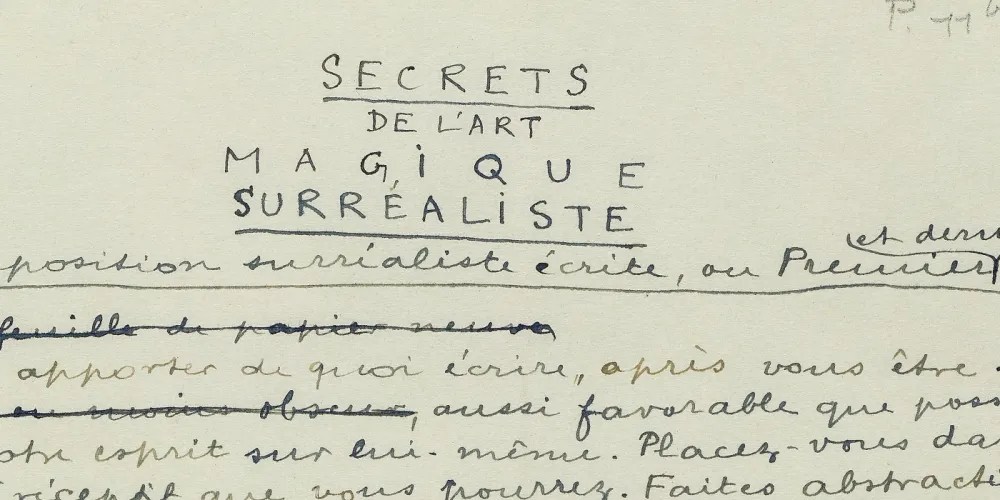 P. 11
SECRETS
DE L'ART
MAGIQUE
SURRÉALISTE
et dern
position surréaliste écrite, ou Premier
feuille de papier neuve
apporter de quoi écrire, après vous être
ou moins obscur, aussi favorable que poss
otre esprit sur lui-même. Placez-vous dan
réceptif que vous pourrez. Faites abstracti